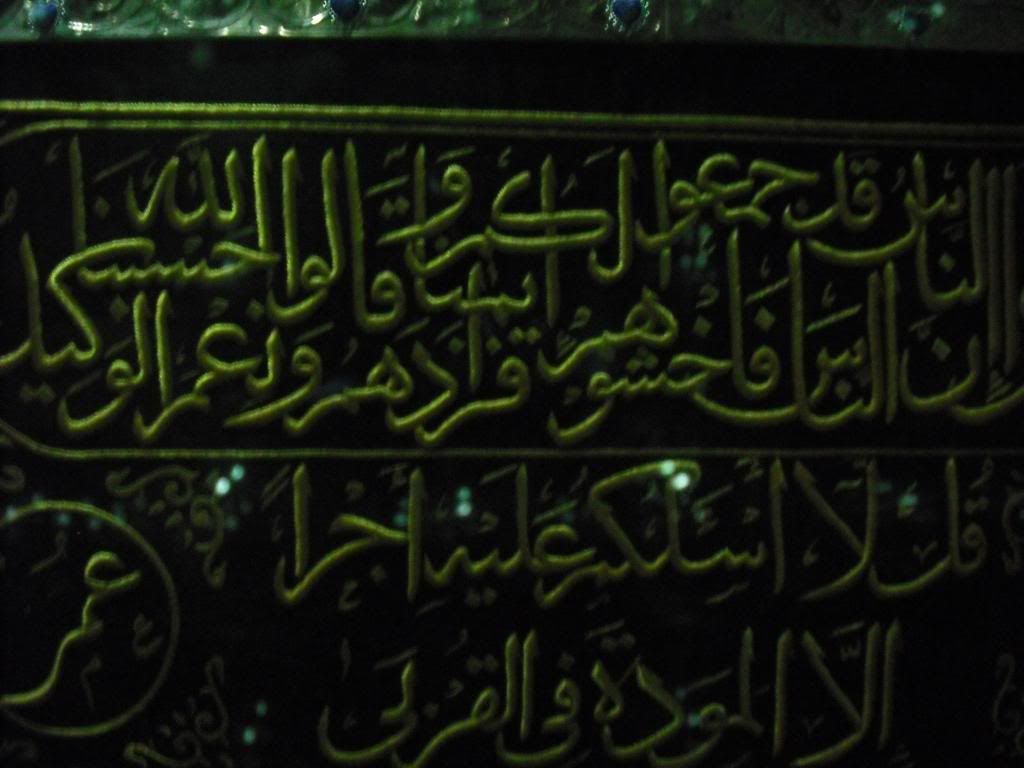 الناس إن الناس قد جمعوا لكم فاخشوهم فزادهم ايمنا وقالوا حسبنا الله ونعم الوكيل
قل لا اسئلكم عليه اجرا
الا المودة فى القربى
عمر